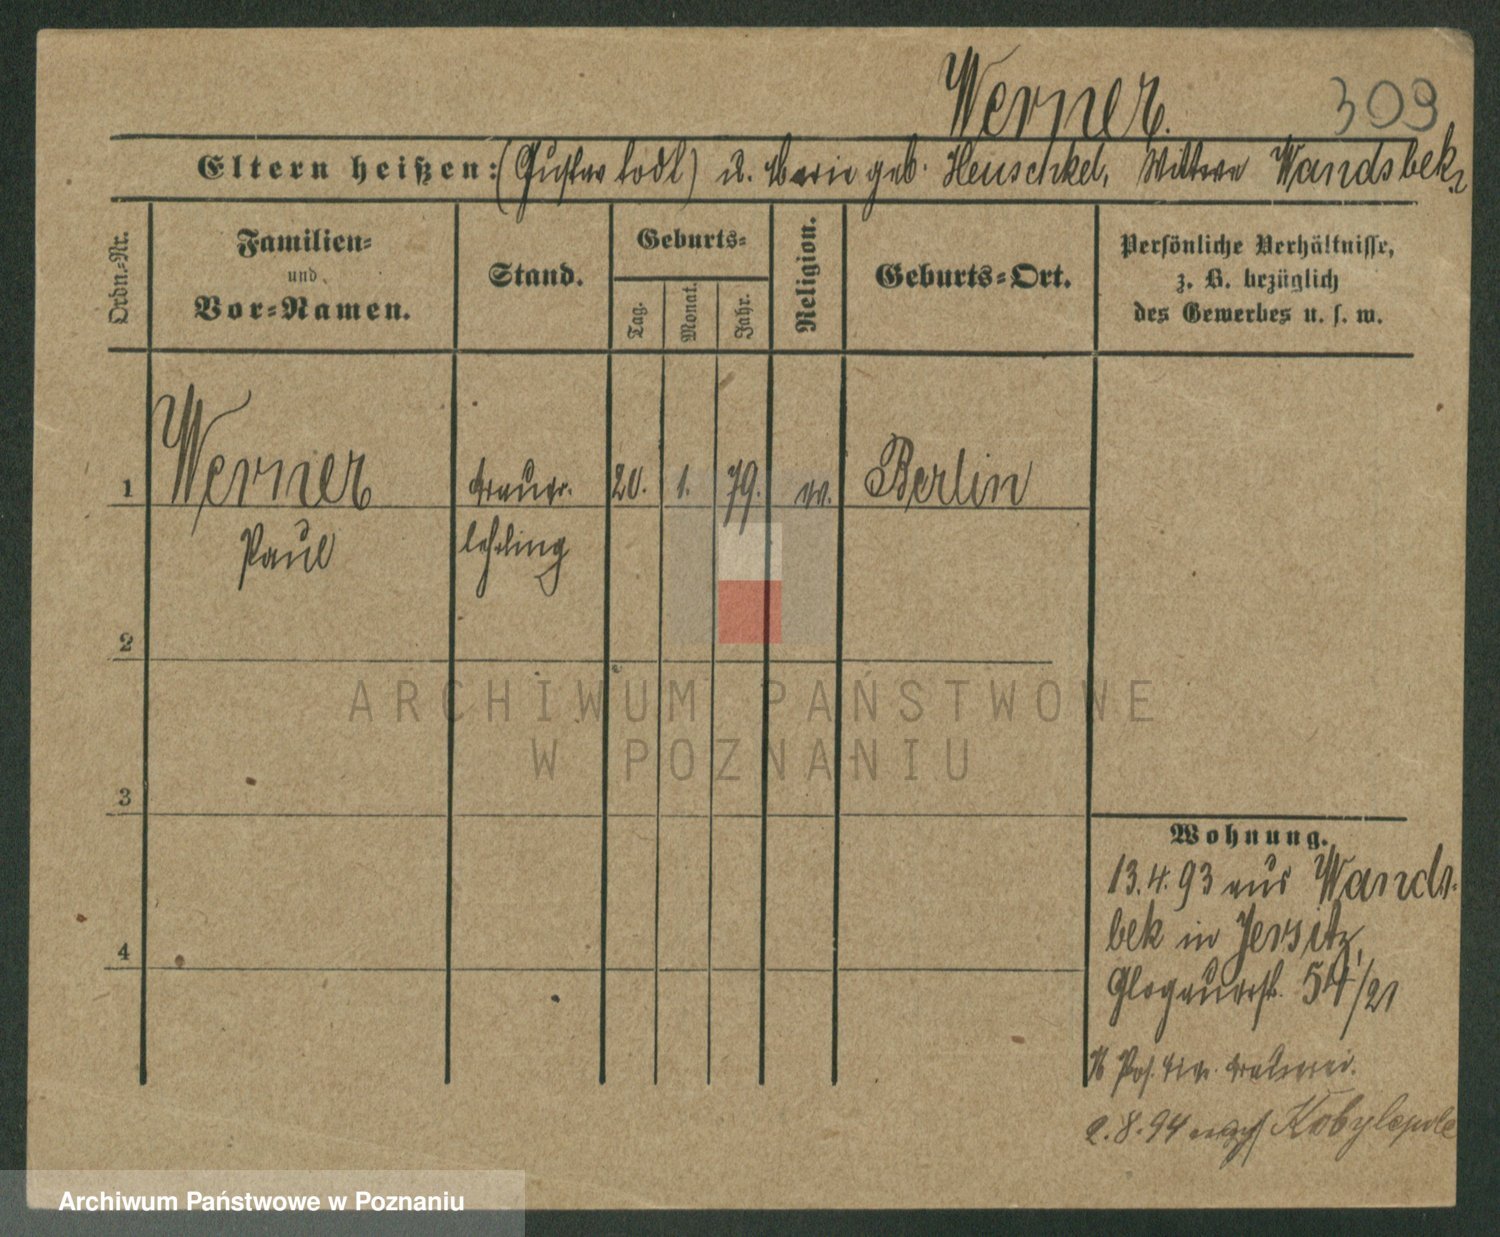 Werner. 309
Eltern heißen: (Gustav todt) u. Marie geb. Heuschkel, Wittwe Wandsbek
Ordn.-Nr.
Familien-
und
Vor-Namen.
Stand.
Geburts-
Tag.
Monat.
Jahr.
Religion.
Geburts-Ort.
Persönliche Verhältnisse,
z. B. bezüglich
des Gewerbes u. s. w.
1 Werner Brauer- 20. 1. 79. ev. Berlin
Paul lehrling
2
3
4
ARCHIWUM PAŃSTWOWE
W POZNANIU
Wohnung.
13.4.93 aus Wands-
bek in Jersitz,
Glogauerstr. 54/21
Brauerei.
2.8.94 nach Kobylepole
Archiwum Państwowe w Poznaniu